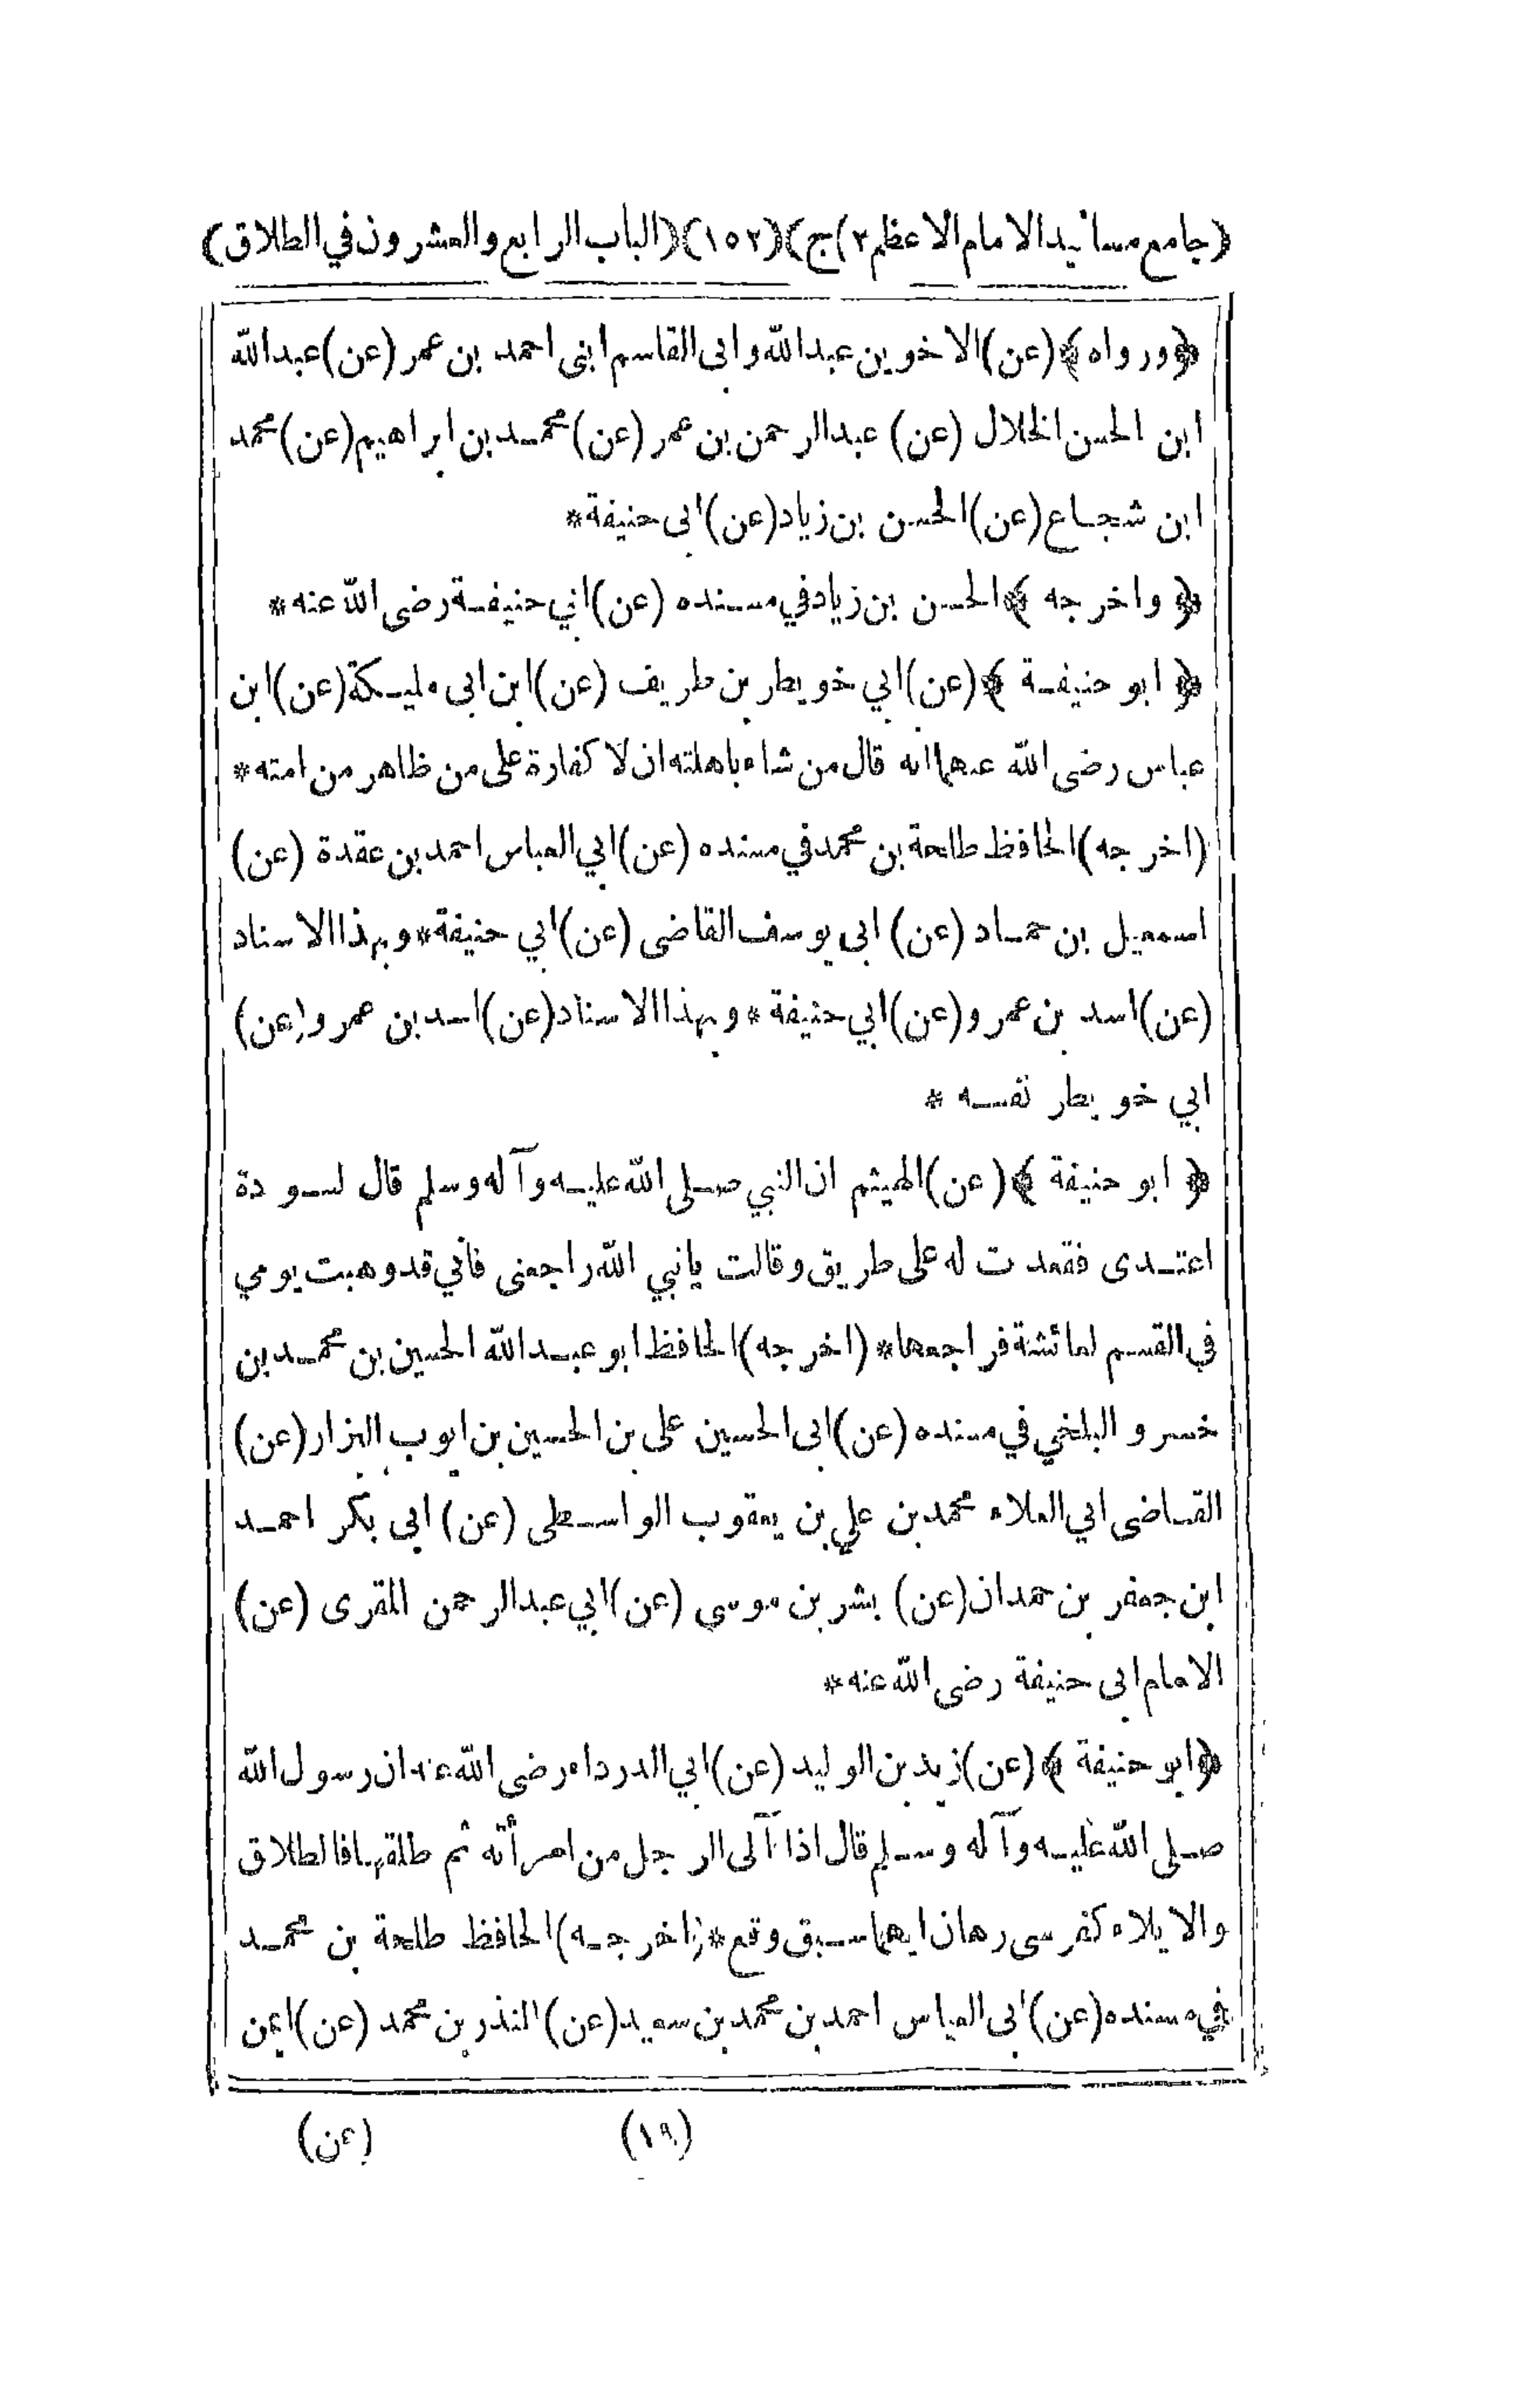 (جامع مسانيد الامام الاعظم ٢)ج)(١٥٢)(الباب الرابع والعشرون في الطلاق)
﴿ورواه﴾(عن)الاخوين عبدالله وابى القاسم ابنى احمد بن عمر (عن)عبدالله
ابن الحسن الخلال (عن) عبدالرحمن بن عمر (عن)محمد بن ابراهيم(عن)محمد
ابن شجاع(عن)الحسن بن زياد(عن)ابى حنيفة*
﴿واخرجه﴾الحسن بن زياد في مسنده (عن)ابي حنيفة رضى الله عنه*
﴿ابو حنيفة﴾(عن)ابي خويطر بن طريف (عن)ابن ابى مليكة(عن)ابن
عباس رضى الله عنهما انه قال من شاء باهلته ان لا كفارة على من ظاهر من امته*
(اخرجه)الحافظ طلحة بن محمد في مسنده (عن)ابي العباس احمد بن عقدة (عن)
اسمعيل بن حماد (عن) ابى يوسف القاضى (عن)ابي حنيفة*وبهذا الاسناد
(عن)اسد بن عمرو(عن)ابي حنيفة*وبهذا الاسناد(عن)اسد بن عمرو(عن)
ابي خويطر نفسه*
﴿ابو حنيفة﴾(عن)الهيثم ان النبي صلى الله عليه وآله وسلم قال لسودة
اعتدى فقعدت له على طريق وقالت يانبي الله راجعنى فاني قد وهبت يومي
في القسم لعائشة فراجعها*(اخرجه)الحافظ ابو عبدالله الحسين بن محمد بن
خسرو البلخي في مسنده (عن)ابى الحسين على بن الحسين بن ايوب البزار(عن)
القاضى ابي العلاء محمد بن علي بن يعقوب الواسطى (عن) ابى بكر احمد
ابن جعفر بن حمدان(عن) بشر بن موسى (عن)ابي عبدالرحمن المقرى (عن)
الامام ابى حنيفة رضى الله عنه*
﴿ابو حنيفة﴾(عن)زيد بن الوليد (عن)ابي الدرداء رضى الله عنه ان رسول الله
صلى الله عليه وآله وسلم قال اذا آلى الرجل من امرأته ثم طلقها فالطلاق
والايلاء كفرسى رهان ايهما سبق وقع*(اخرجه)الحافظ طلحة بن محمد
في مسنده(عن)ابى العباس احمد بن محمد بن سعيد(عن)المنذر بن محمد (عن)ايمن
(١٩) (عن)